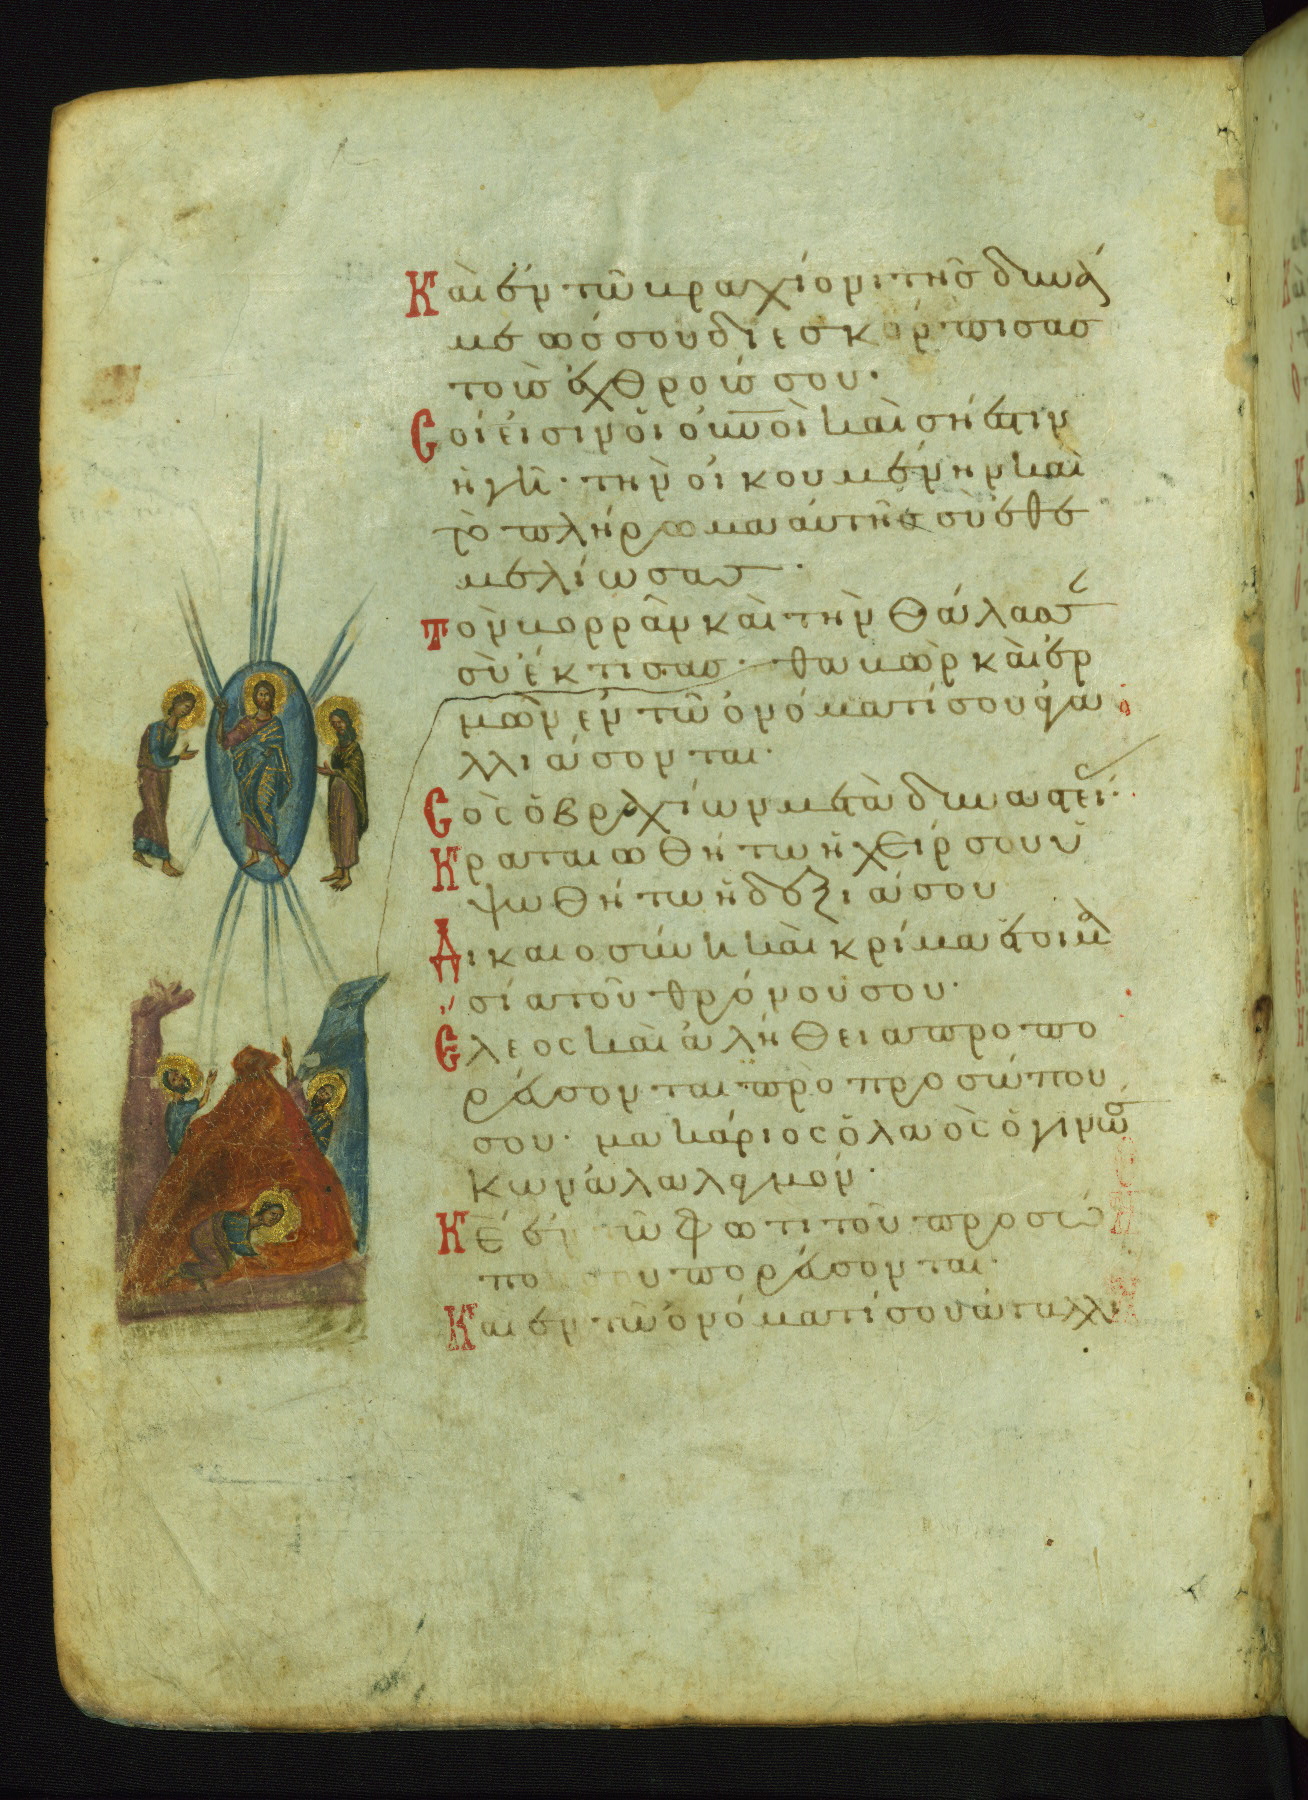 Καὶ ἐν τῶ βραχίονι τῆς δυνά
μεώς σου διεσκόρπισας
τοὺς ἐχθρούς σου·
Σοί εἰσιν οἱ οὐνοὶ καὶ σή ἐστιν
ἡ γῆ· τὴν οἰκουμένην καὶ
τὸ πλήρωμα αὐτῆς σὺ ἐθε
μελίωσας·
Τὸν βορρᾶν καὶ τὴν θάλασς
σὺ ἔκτισας· θαβὼρ καὶ ἐρ
μὼν ἐν τῶ ὀνόματί σου ἀγα
λλιάσονται·
Σὸς ὁ βραχίων μετὰ δυναστεί·
Κραταιωθήτω ἡ χείρ σου ὑ
ψωθήτω ἡ δεξιά σου
Δικαιοσύνη καὶ κρίμα ἑτοιμα
σία τοῦ θρόνου σου·
Ἔλεος καὶ ἀλήθεια προπο
ρεύσονται πρὸ προσώπου
σου· μακάριος ὁ λαὸς ὁ γινώσ
κων ἀλαλαγμόν·
Κε ἐν τῶ φωτὶ τοῦ προσώ
που σου πορεύσονται·
Καὶ ἐν τῶ ὀνόματί σου ἀγαλλι